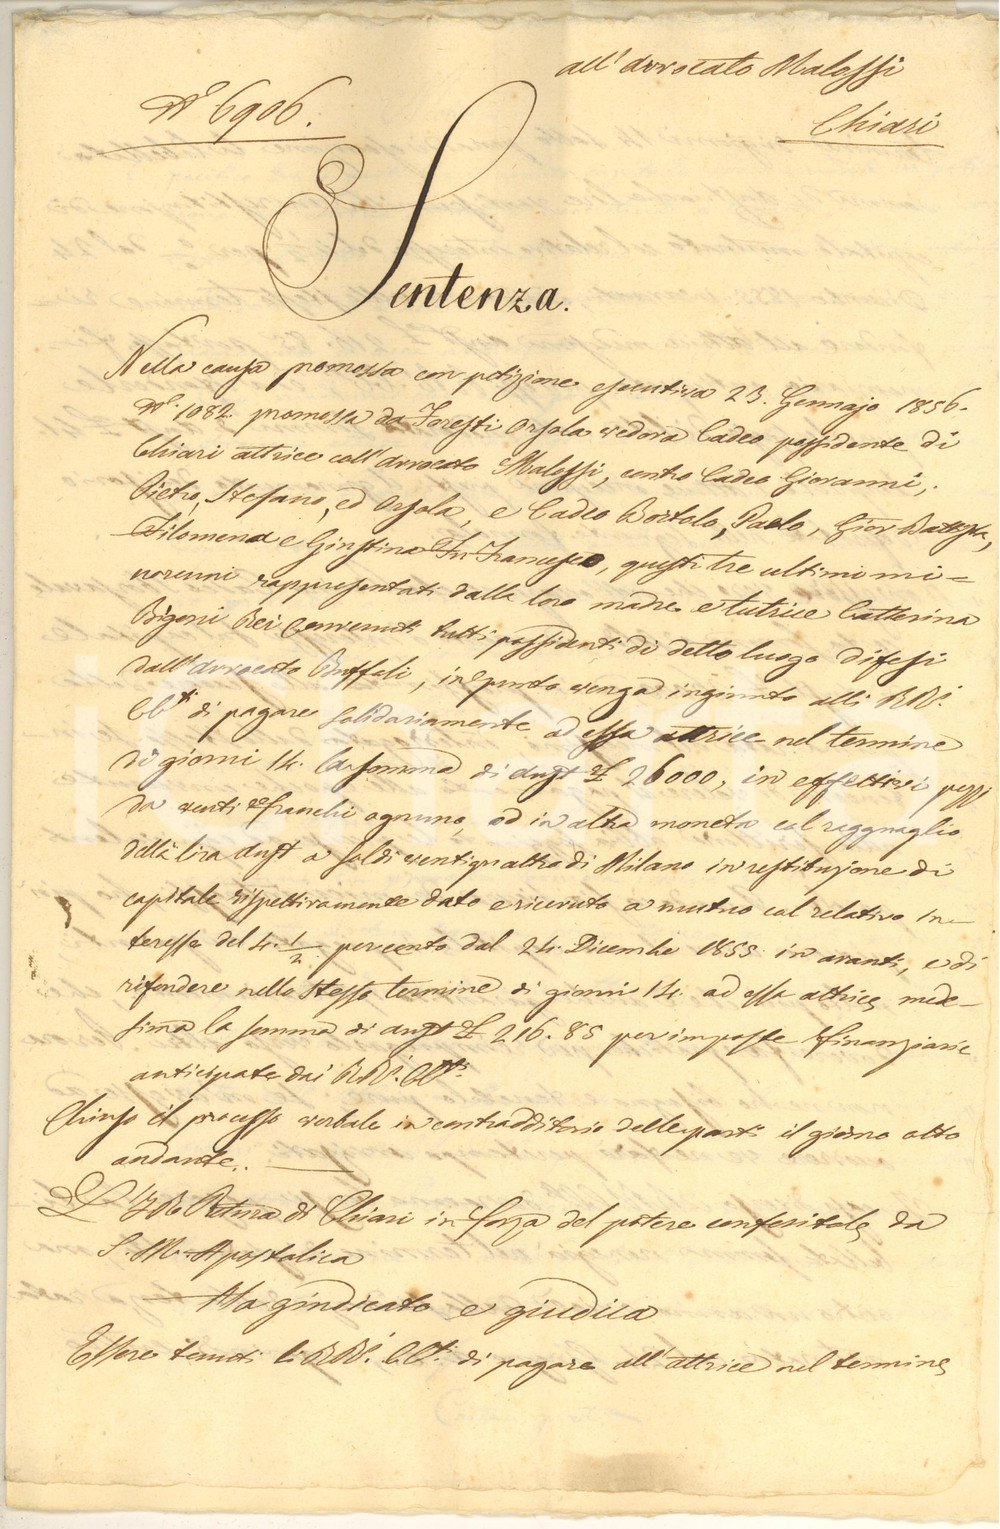 all' avvocato Malossi
N.° 6906.
Chiari
Sentenza.
Nella causa promossa con petizione esecutiva 23. Gennajo 1856.
N.° 1082. promossa da Foresti Orsola vedova Cadeo possidente di
Chiari attrice coll' avvocato Malossi, contro Cadeo Giovanni,
Pietro, Stefano, ed Orsola, e Cadeo Bortolo, Paolo, Giov Battista,
Filomena e Giustina fu Francesco, questi tre ultimi mi=
norenni rappresentati dalla loro madre e tutrice Catterina
Bigoni Rei convenuti tutti possidenti di detto luogo difesi
dall' avvocato Buffoli, in punto venga ingiunto alli RR.i
CC.ti di pagare solidariamente ad essa attrice nel termine
di giorni 14. la somma di aust £ 26000, in effettivi pezzi
da venti franchi ognuno, od in altra moneta col ragguaglio
della lira aust a soldi ventiquattro di Milano in restituzione di
capitale rispettivamente dato e ricevuto a mutuo col relativo in=
teresse del 4. 1/2 per cento dal 24. Dicembe 1855 in avanti, e di
rifondere nello stesso termine di giorni 14. ad essa attrice mede=
sima la somma di aust £ 216. 85 per imposte finanziarie
anticipate dai RR.i CC.ti
Chiuso il processo verbale in contradditorio delle parti il giorno otto
andante.
L' I. R. Pretura di Chiari in forza del potere conferitole da
S. M. Apostolica
Ha giudicato e giudica
Essere tenuti li RR.i CC.ti di pagare all' attrice nel termine